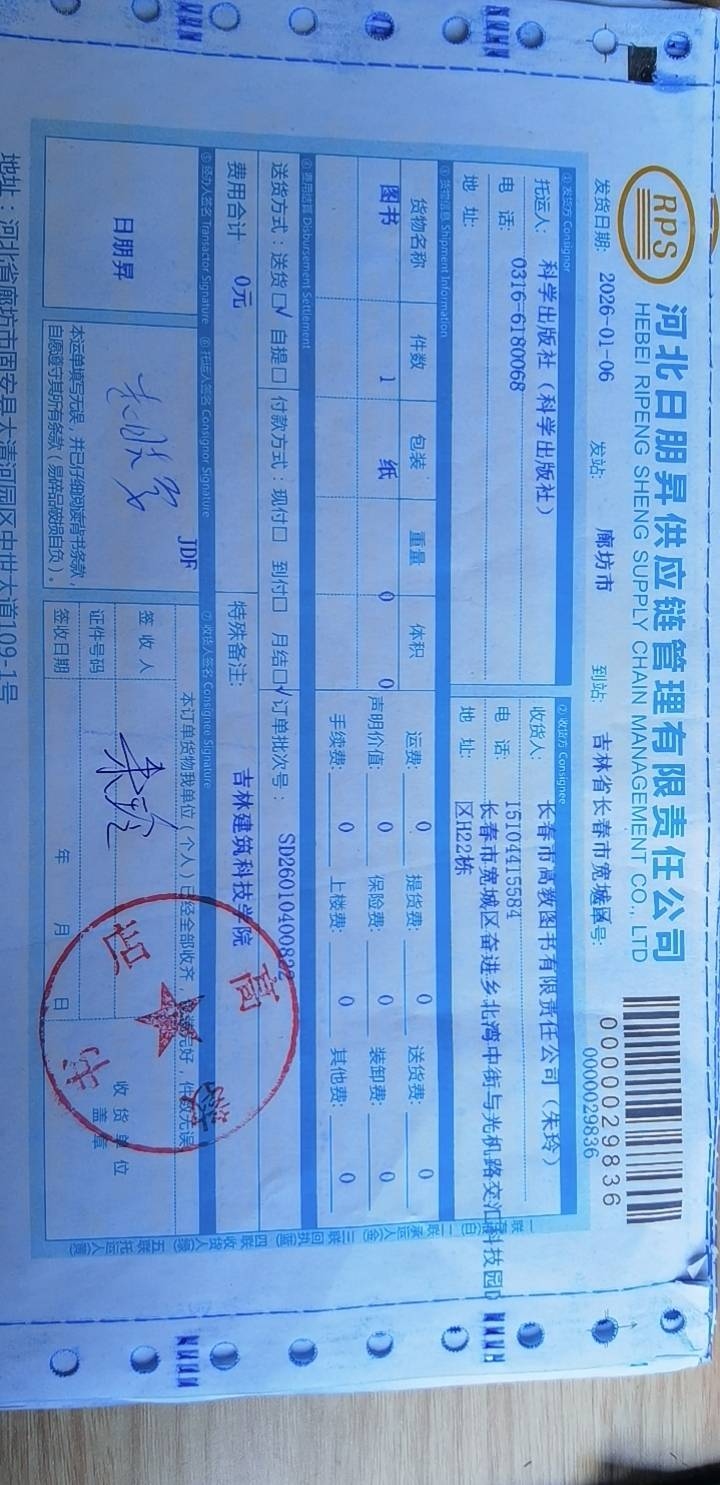 RPS
河北日朋昇供应链管理有限责任公司
HEBEI RIPENG SHENG SUPPLY CHAIN MANAGEMENT CO., LTD
0000029836
0000029836
发货日期: 2026-01-06 发站: 廊坊市 到站: 吉林省长春市宽城区 号:
① 发货方 Consignor ② 收货方 Consignee
托运人: 科学出版社（科学出版社） 收货人: 长春市高教图书有限责任公司（朱玲）
电 话: 0316-6180068 电 话: 15104415584
地 址: 地 址: 长春市宽城区奋进乡北湾中街与光机路交汇 科技园D
区H22栋
③ 货物信息 Shipment Information
货物名称 件数 包装 重量 体积 运费: 0 提货费: 0 送货费: 0
图书 1 纸 0 0 声明价值: 0 保险费: 0 装卸费: 0
手续费: 0 上楼费: 0 其他费: 0
④ 费用结算 Disbursement Settlement
送货方式: 送货□√ 自提□ 付款方式: 现付□ 到付□ 月结□√ 订单批次号: SD2601040082
费用合计 0元 特殊备注: 吉林建筑科技学院
⑤ 经办人签名 Transactor Signature ⑥ 托运人签名 Consignor Signature ⑦ 收货人签名 Consignee Signature
日朋昇
JDF
本运单填写无误，并已仔细阅读背书条款，
自愿遵守其所有条款（易碎品破损自负）。
本订单货物我单位（个人）已经全部收齐， 完好，件数无误
签 收 人 朱玲
证件号码
签收日期 年 月 日
收 货 单 位
盖 章
高 教 书 店
一联 (白) 二联承运人(金) 三联回执(蓝) 四联收货人(绿) 五联托运人(黄)
地址：河北省廊坊市固安县大清河园区中世大道109-1号